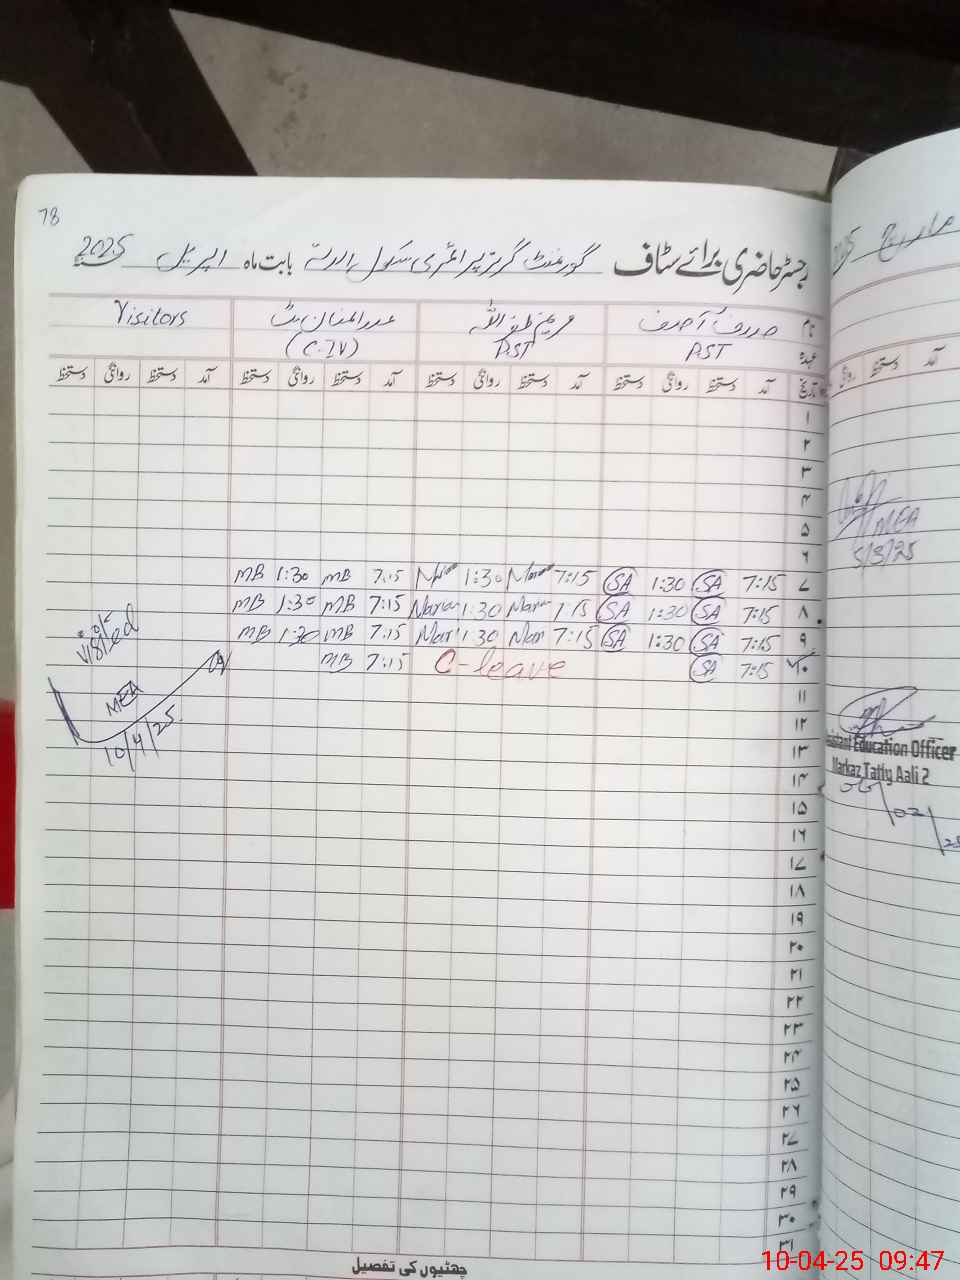 78
رجسٹر حاضری برائے سٹاف گورنمنٹ گرلز پرائمری سکول بابت ماہ اپریل 2025
نام عریم ظفر اللہ Visitors
عہدہ PST PST (C.IV)
تاریخ آمد دستخط روانگی دستخط آمد دستخط روانگی دستخط آمد دستخط روانگی دستخط آمد دستخط روانگی دستخط
۱
۲
۳
۴
۵
۶
۷ 7:15 SA 1:30 SA 7:15 1:30 7:15 MB 1:30 MB
۸ 7:15 SA 1:30 SA 7:15 1:30 7:15 MB 1:30 MB
۹ 7:15 SA 1:30 SA 7:15 Mar 1:30 Mar 7:15 MB 1:30 MB
۱۰ 7:15 SA C-leave 7:15 MB
visited
MEA
10/4/25
۱۱
۱۲
۱۳
۱۴
۱۵
۱۶
۱۷
۱۸
۱۹
۲۰
۲۱
۲۲
۲۳
۲۴
۲۵
۲۶
۲۷
۲۸
۲۹
۳۰
۳۱
چھٹیوں کی تفصیل
مارچ
آمد دستخط روانگی
MEA
5/3/25
Assistant Education Officer
Markaz Tatly Aali 2
10-04-25 09:47